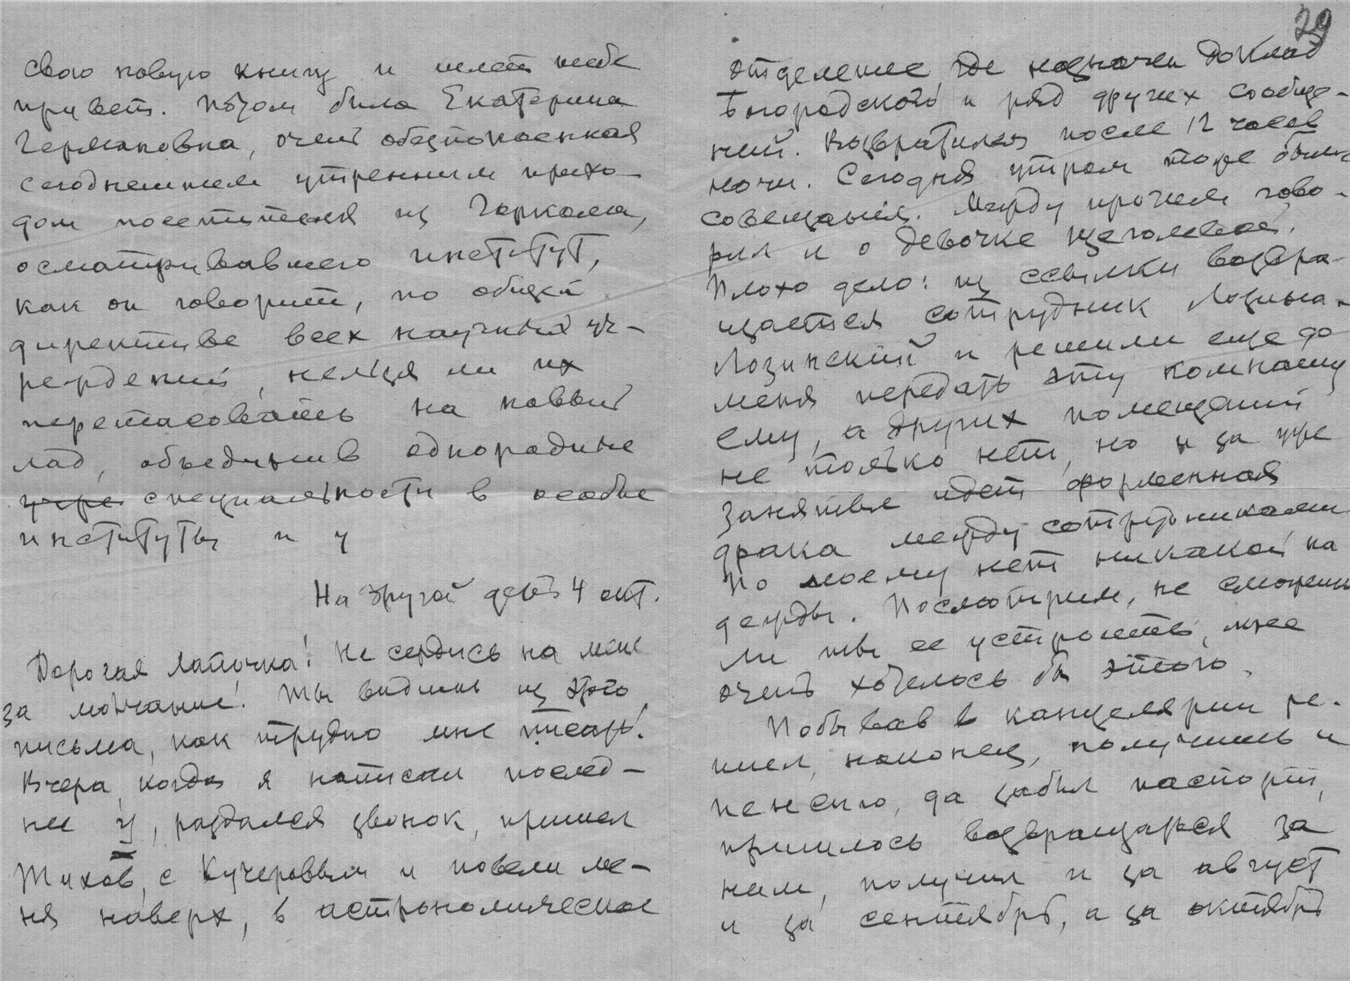 свою новую книгу и шлет тебе
привет. Потом была Екатерина
Германовна, очень обеспокоенная
сегодняшнем утренним прихо-
дом посетителя из Горкома,
осматривавшего институт,
как он говорит, по общей
директиве всех научных уч-
реждений, нельзя ли их
перетасовать на новый
лад, объединив однородные
учре специальности в особые
институты и у
На другой день 4 окт.
Дорогая Лапочка! Не сердись на меня
за молчание! Ты видишь из этого
письма, как трудно мне писать!
Вчера, когда я написал послед-
нее у, раздался звонок, пришел
Тихов, с Кучеровым и повели ме-
ня наверх, в астрономическое
29
отделение, где назначен доклад
Городского и ряд других сообще-
ний. Возвратился после 12 часов
ночи. Сегодня утром тоже было
совещание. Между прочим гово-
рил и о девочке Щеголевой.
Плохо дело: из ссылки возвра-
щается сотрудник Лозина-
Лозинский и решили еще до
меня передать эту комнату
ему, а других помещений
не только нет, но и за уже
занятые идет форменная
драка между сотрудниками
По моему нет никакой на
дежды. Посмотрим, не сможешь
ли ты ее устроить, мне
очень хотелось бы этого.
Побывав в канцелярии ре-
шил, наконец, получить и
пенсию, да забыл паспорт,
пришлось возвращаться за
ним, получил и за август
и за сентябрь, а за октябрь